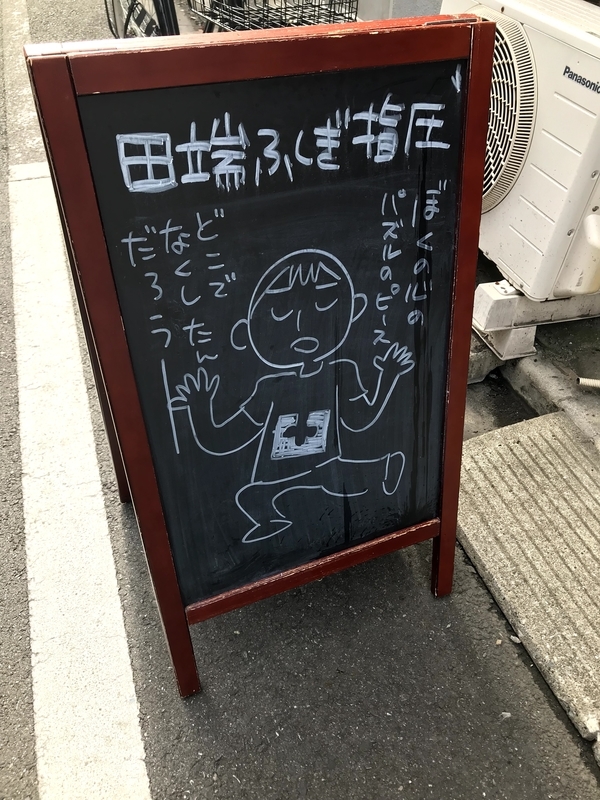 田端ふしぎ指圧
ぼくの心の
パズルのピース
どこで
なくしたん
だろう
Panasonic